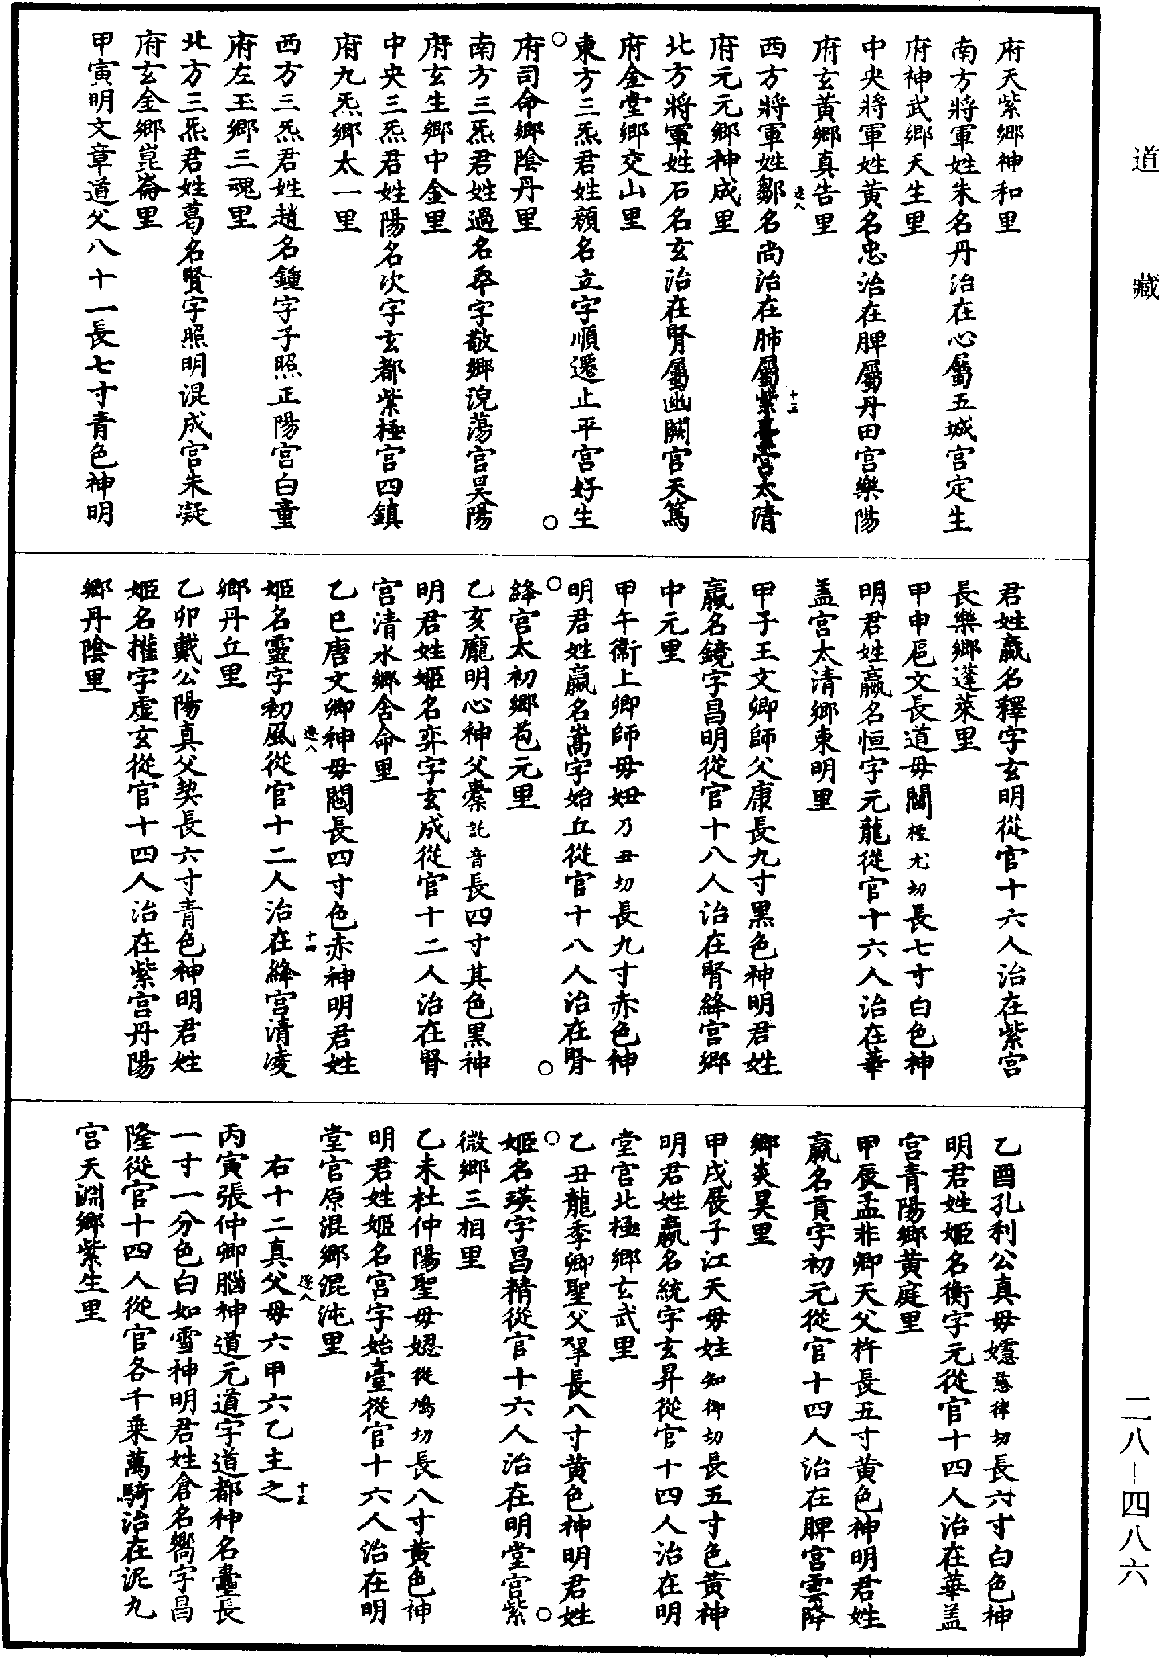 道藏
府天紫鄉神和里
南方將軍姓朱名丹治在心屬五城宮定生
府神武鄉天生里
中央將軍姓黃名忠治在脾屬丹田宮樂陽
府玄黃鄉真告里
西方將軍姓鄒名尚治在肺屬紫臺宮太清
府元元鄉神成里
北方將軍姓石名玄治在腎屬幽闕宮天篤
府金堂鄉交山里
東方三炁君姓顏名立字順遷止平宮好生
府司命鄉陰丹里
南方三炁君姓過名奉字敬鄉涗蕩宮吴陽
府玄生鄉中金里
中央三炁君姓陽名次字玄都紫極宮四鎮
府九炁鄉太一里
西方三炁君姓趙名鍾字子照正陽宮白童
府左玉鄉三魂里
北方三炁君姓葛名賢字照明混成宮朱凝
府玄金鄉崑崙里
甲寅明文章道父八十一長七寸青色神明
君姓嬴名釋字玄明從官十六人治在紫宮
長樂鄉蓬萊里
甲申扈文長道母䦨極尤切長七寸白色神
明君姓嬴名恒字元龍從官十六人治在華
蓋宮太清鄉東明里
甲子王文卿師父康長九寸黑色神明君姓
嬴名鏡字昌明從官十八人治在腎絳宮鄉
中元里
甲午衞上卿師母妞乃丑切長九寸赤色神
明君姓嬴名嵩字始丘從官十八人治在腎
絳宮太初鄉苞元里
乙亥龐明心神父橐託音長四寸其色黑神
明君姓姬名弈字玄成從官十二人治在腎
宮清水鄉含命里
乙巳唐文卿神母閻長四寸色赤神明君姓
姬名靈字初風從官十二人治在絳宮清凌
鄉丹丘里
乙卯戴公陽真父契長六寸青色神明君姓
姬名權字虛玄從官十四人治在紫宮丹陽
鄉丹陰里
乙酉孔利公真母嬬慈律切長六寸白色神
明君姓姬名衡字元從官十四人治在華蓋
宮青陽鄉黃庭里
甲辰孟非卿天父杵長五寸黃色神明君姓
嬴名貢字初元從官十四人治在脾宮雲降
鄉炎昊里
甲戌展子江天母妵知御切長五寸色黃神
明君姓嬴名統字玄昇從官十四人治在明
堂宮北極鄉玄武里
乙丑龍季卿聖父翠長八寸黃色神明君姓
姬名瑛字昌精從官十六人治在明堂宮紫
微鄉三相里
乙未杜仲陽聖母㜝從鳩切長八寸黃色神
明君姓姬名宮字始臺從官十六人治在明
堂宮原混鄉混沌里
右十二真父母六甲六乙主之
丙寅張仲卿腦神道元道字道都神名臺長
一寸一分色白如雪神明君姓倉名嚮字昌
隆從官十四人從官各千乘萬騎治在泥丸
宮天淵鄉紫生里
二八–四八六